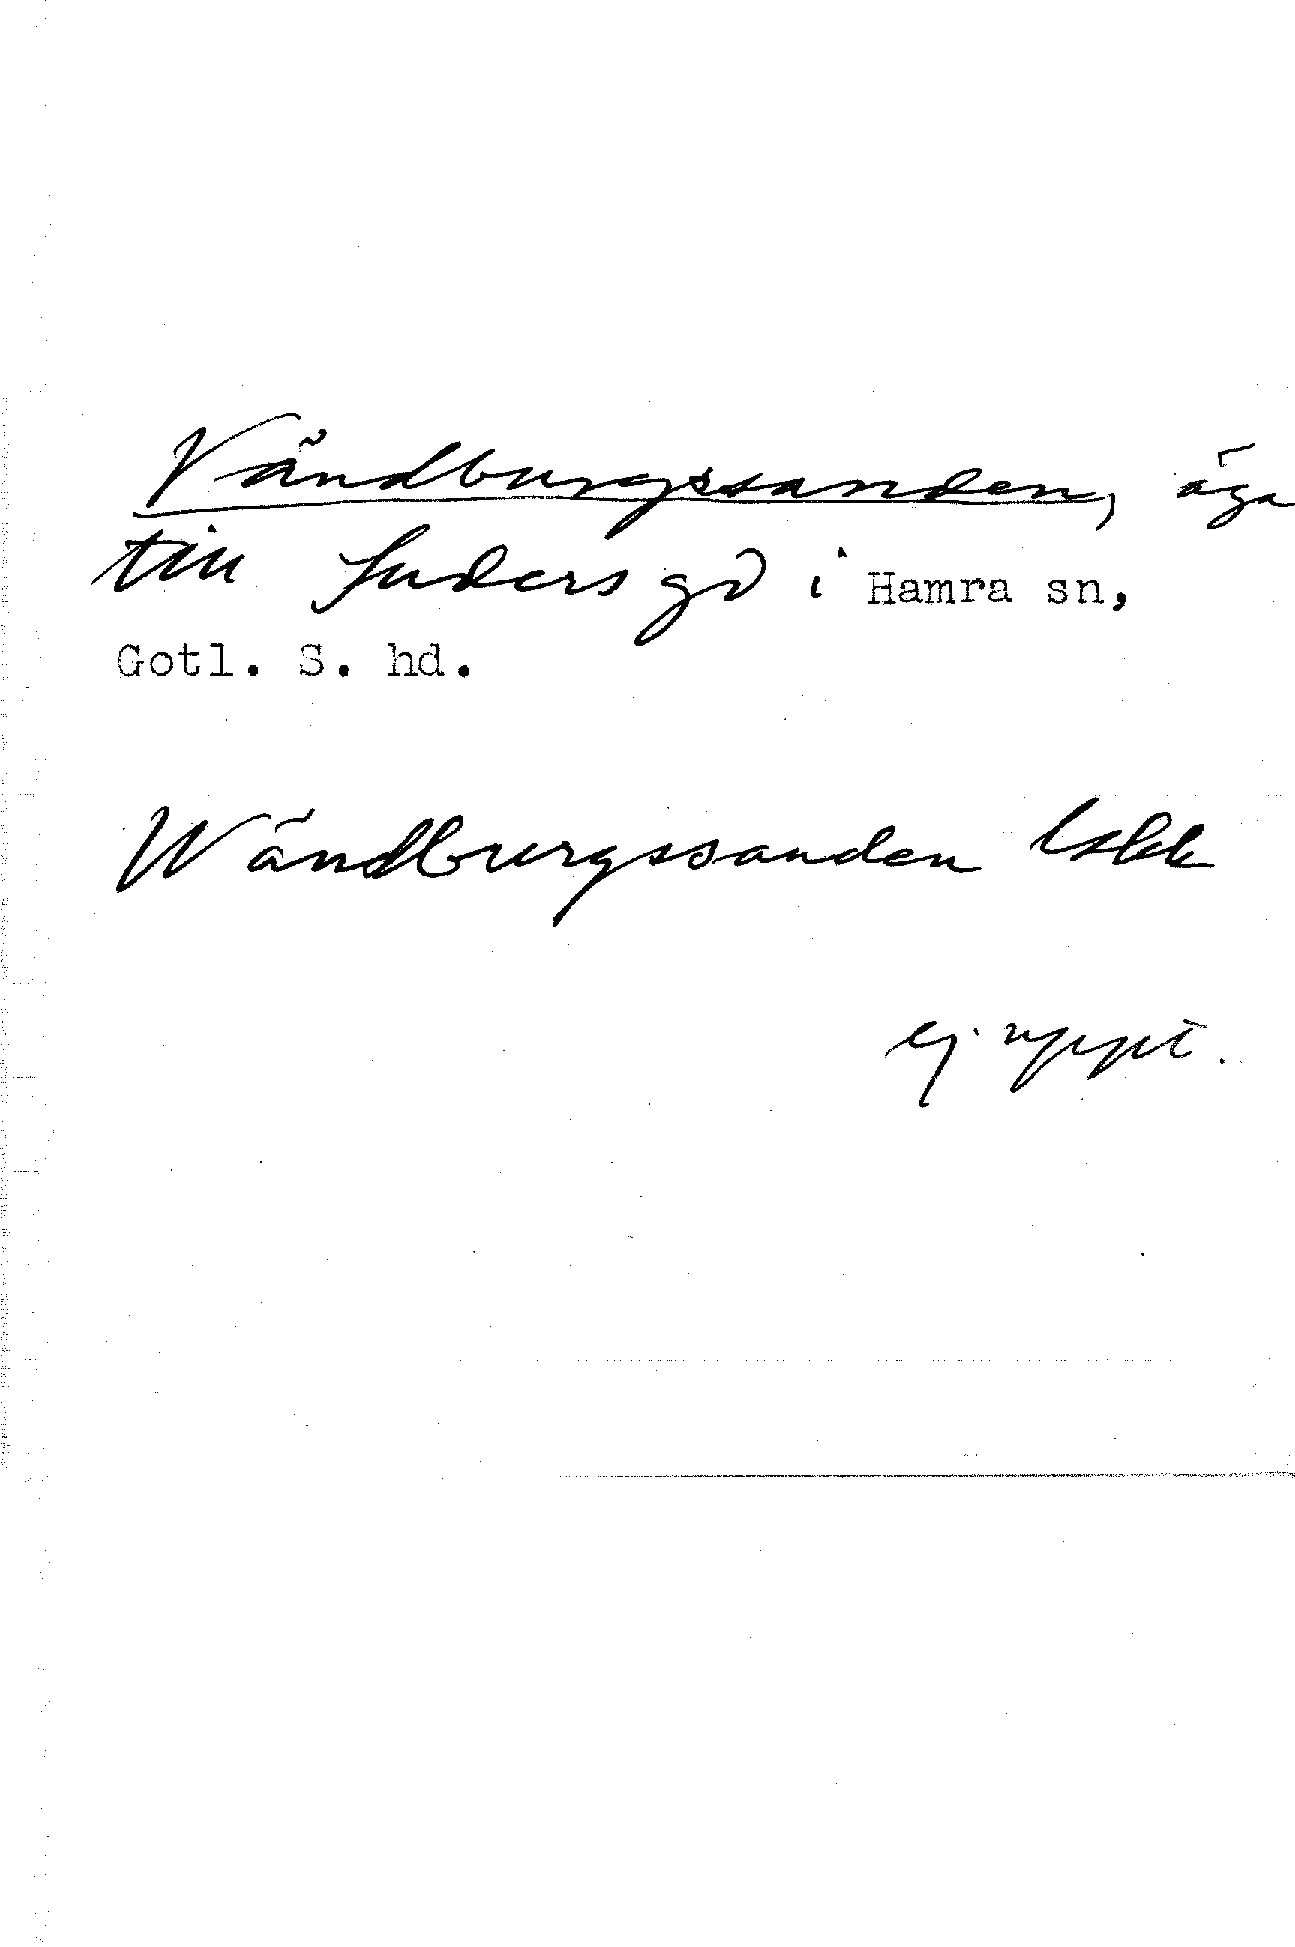 Vändburgssanden, äga
till Suders gd i Hamra sn,
Gotl. S. hd.
Wändburgssanden
ej uppt.